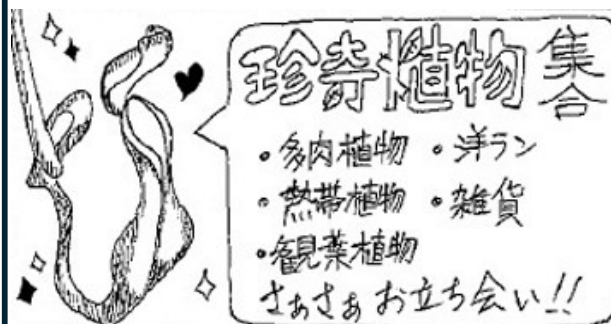 珍奇植物 集合
・多肉植物 ・洋ラン
・熱帯植物 ・雑貨
・観葉植物
さぁさぁお立ち会い!!